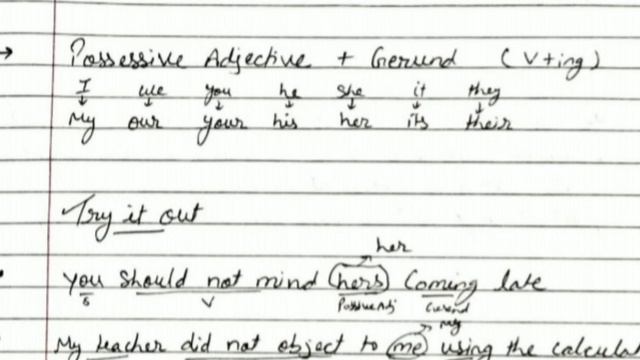 → Possessive Adjective + Gerund (V+ing)
I we you he she it they
↓ ↓ ↓ ↓ ↓ ↓ ↓
My our your his her its their
Try it out
her
you should not mind (hers) Coming late
S V Possessive Adj Gerund
my
My teacher did not object to (me) using the calcula